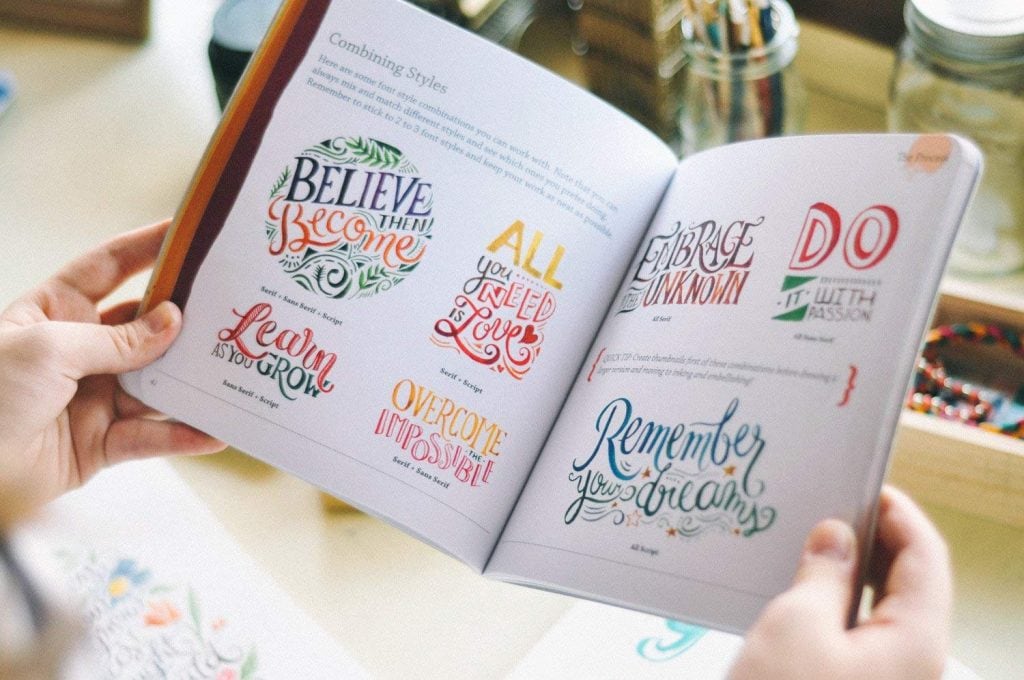 Combining Styles
Here are some font style combinations you can work with. Note that you can
always mix and match different styles and see which ones you prefer doing.
Remember to stick to 2 to 3 font styles and keep your work as neat as possible.
BELIEVE
THEN
Become
Serif + Sans Serif + Script
ALL
you
NEED
is Love
Serif + Script
Learn
AS YOU GROW
Sans Serif + Script
OVERCOME
THE
IMPOSSIBLE
Serif + Sans Serif
42
The Process
EMBRACE
THE UNKNOWN
All Serif
DO
IT WITH
PASSION
All Sans Serif
{ QUICK TIP: Create thumbnails first of these combinations before drawing a
larger version and moving to inking and embellishing! }
Remember
your dreams
All Script